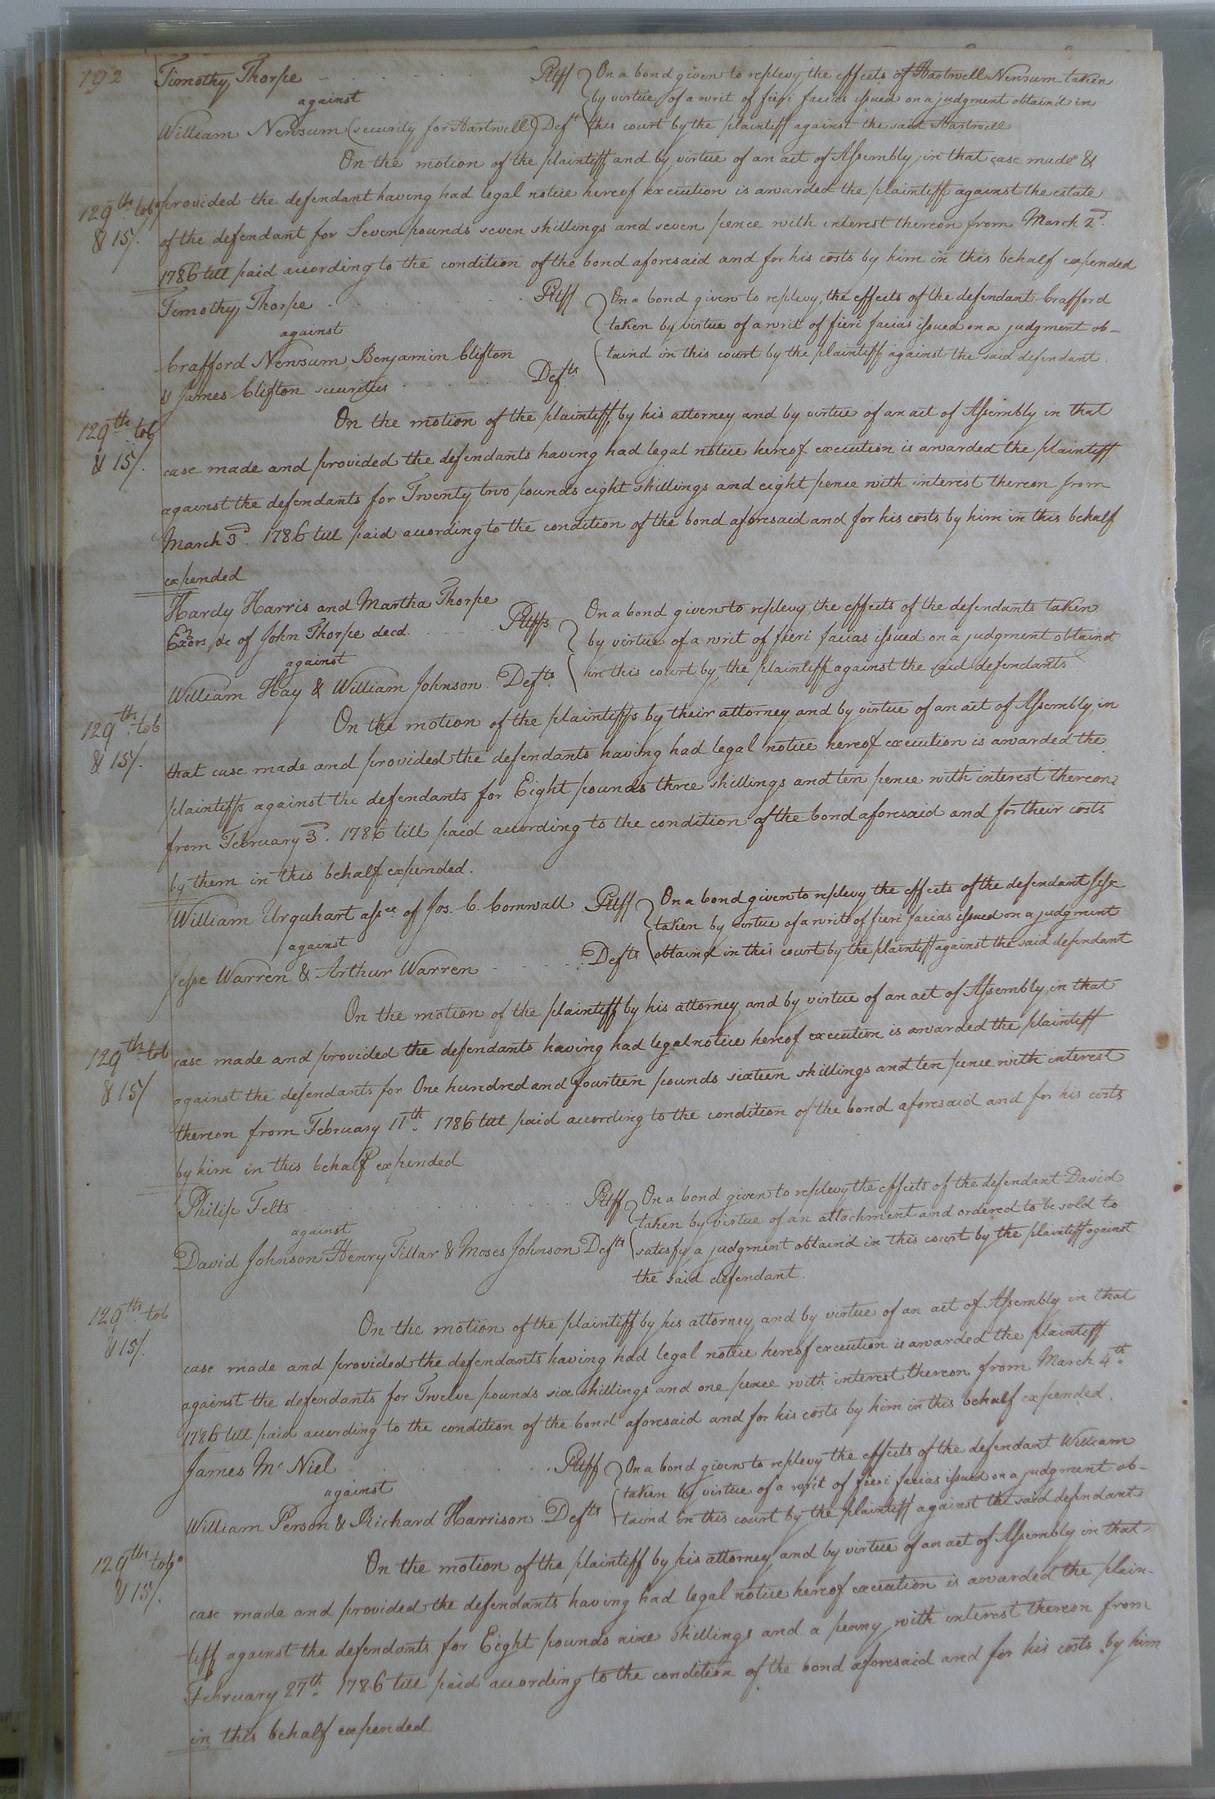 192
Timothy Thorpe Pltff On a bond given to replevy the effects of Hartwell Newsum taken
against by virtue of a writ of fieri facias issued on a judgment obtain'd in
William Newsum (security for Hartwell) Deft this court by the plaintiff against the said Hartwell
On the motion of the plaintiff and by virtue of an act of Assembly in that case made &
provided the defendant having had legal notice hereof execution is awarded the plaintiff against the estate
129th tob
& 15/.
of the defendant for Seven pounds seven shillings and seven pence with interest thereon from March 2d.
1786 till paid according to the condition of the bond aforesaid and for his costs by him in this behalf expended
Timothy Thorpe Pltff On a bond given to replevy the effects of the defendant Crafford
against taken by virtue of a writ of fieri facias issued on a judgment ob-
Crafford Newsum, Benjamin Clifton taind in this court by the plaintiff against the said defendant
& James Clifton securities Defts
On the motion of the plaintiff, by his attorney and by virtue of an act of Assembly in that
129th tob
& 15/.
case made and provided the defendants having had legal notice hereof execution is awarded the plaintiff
against the defendants for Twenty two pounds eight shillings and eight pence with interest thereon from
March 3d. 1786 till paid according to the condition of the bond aforesaid and for his costs by him in this behalf
expended
Hardy Harris and Martha Thorpe
Exors &c of John Thorpe decd. Pltffs On a bond given to replevy the effects of the defendants taken
against by virtue of a writ of fieri facias issued on a judgment obtaind
William Hay & William Johnson Defts in this court by the plaintiff against the said defendants
On the motion of the plaintiffs by their attorney and by virtue of an act of Assembly in
129th tob
& 15/.
that case made and provided the defendants having had legal notice hereof execution is awarded the
plaintiffs against the defendants for Eight pounds three shillings and ten pence with interest thereon
from February 3d. 1786 till paid according to the condition of the bond aforesaid and for their costs
by them in this behalf expended.
William Urquhart assee of Jos. C. Cornwall Pltff On a bond given to replevy the effects of the defendant Jesse
against taken by virtue of a writ of fieri facias issued on a judgment
Jesse Warren & Arthur Warren Defts obtaind in this court by the plaintiff against the said defendant
On the motion of the plaintiff by his attorney and by virtue of an act of Assembly in that
129th tob
& 15/
case made and provided the defendants having had legal notice hereof execution is awarded the plaintiff
against the defendants for One hundred and fourteen pounds sixteen shillings and ten pence with interest
thereon from February 11th. 1786 till paid according to the condition of the bond aforesaid and for his costs
by him in this behalf expended
Philip Felts Pltff On a bond given to replevy the effects of the defendant David
against taken by virtue of an attachment and ordered to be sold to
David Johnson Henry Tillar & Moses Johnson Defts satisfy a judgment obtain'd in this court by the plaintiff against
the said defendant.
On the motion of the plaintiff by his attorney and by virtue of an act of Assembly in that
129th tob
& 15/.
case made and provided the defendants having had legal notice hereof execution is awarded the plaintiff
against the defendants for Twelve pounds six shillings and one pence with interest thereon from March 4th.
1786 till paid according to the condition of the bond aforesaid and for his costs by him in this behalf expended.
James Mc Niel Pltff On a bond given to replevy the effects of the defendant William
against taken by virtue of a writ of fieri facias issued on a judgment ob-
William Person & Richard Harrison Defts taind in this court by the plaintiff against the said defendant
On the motion of the plaintiff by his attorney and by virtue of an act of Assembly in that
129th tobo
& 15/.
case made and provided the defendants having had legal notice hereof execution is awarded the plain-
tiff against the defendants for Eight pounds nine shillings and a penny with interest thereon from
February 27th. 1786 till paid according to the condition of the bond aforesaid and for his costs by him
in this behalf expended